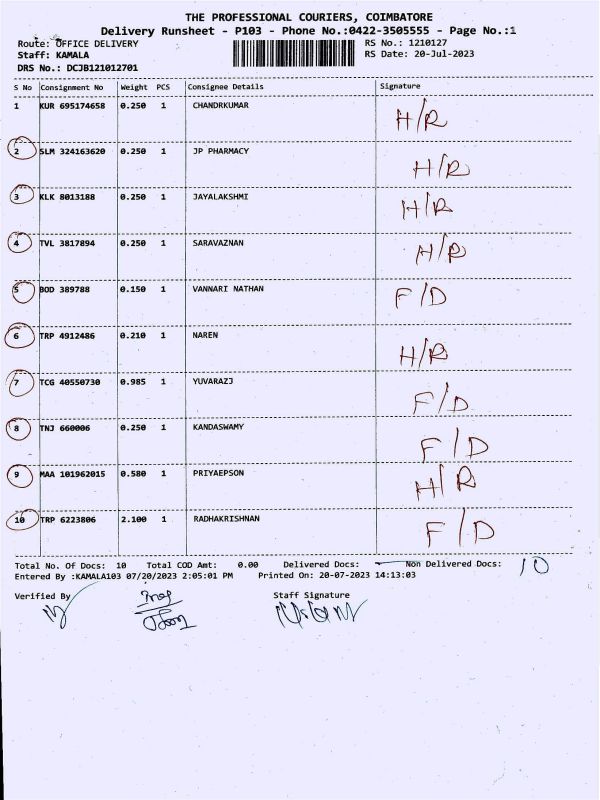 THE PROFESSIONAL COURIERS, COIMBATORE
Delivery Runsheet - P103 - Phone No.:0422-3505555 - Page No.:1
Route: OFFICE DELIVERY RS No.: 1210127
Staff: KAMALA RS Date: 20-Jul-2023
DRS No.: DCJB121012701
S No Consignment No Weight PCS Consignee Details Signature
1 KUR 695174658 0.250 1 CHANDRKUMAR H/R
2 SLM 324163620 0.250 1 JP PHARMACY H/R
3 KLK 8013188 0.250 1 JAYALAKSHMI H/R
4 TVL 3817894 0.250 1 SARAVAZNAN H/R
5 BOD 389788 0.150 1 VANNARI NATHAN F/D
6 TRP 4912486 0.210 1 NAREN H/R
7 TCG 40550730 0.985 1 YUVARAZJ F/D
8 TNJ 660006 0.250 1 KANDASWAMY F/D
9 MAA 101962015 0.580 1 PRIYAEPSON H/R
10 TRP 6223806 2.100 1 RADHAKRISHNAN F/D
Total No. Of Docs: 10 Total COD Amt: 0.00 Delivered Docs: Non Delivered Docs: 10
Entered By :KAMALA103 07/20/2023 2:05:01 PM Printed On: 20-07-2023 14:13:03
Verified By Staff Signature